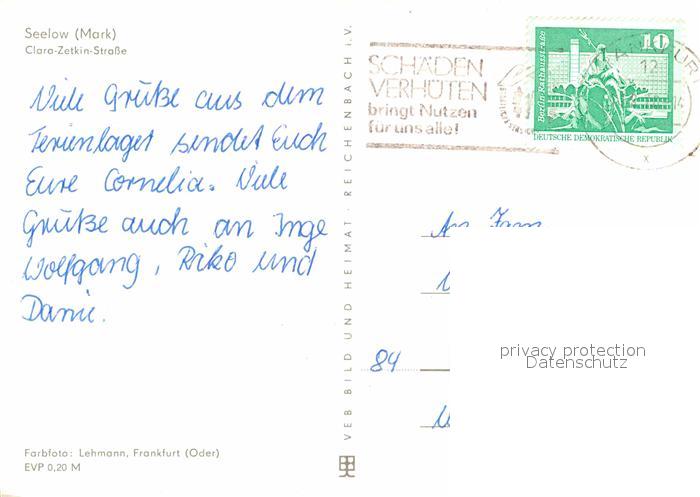 Seelow (Mark)
Clara-Zetkin-Straße
Viele Grüße aus dem
Ferienlager sendet Euch
Eure Cornelia. Viele
Grüße auch an Inge
Wolfgang, Riko und
Danie.
Farbfoto: Lehmann, Frankfurt (Oder)
EVP 0,20 M
VEB BILD UND HEIMAT REICHENBACH i.V.
SCHÄDEN
VERHÜTEN
bringt Nutzen
für uns alle!
10
Berlin, Rathausstraße
DEUTSCHE DEMOKRATISCHE REPUBLIK
12
x
An Fam
84
privacy protection
Datenschutz